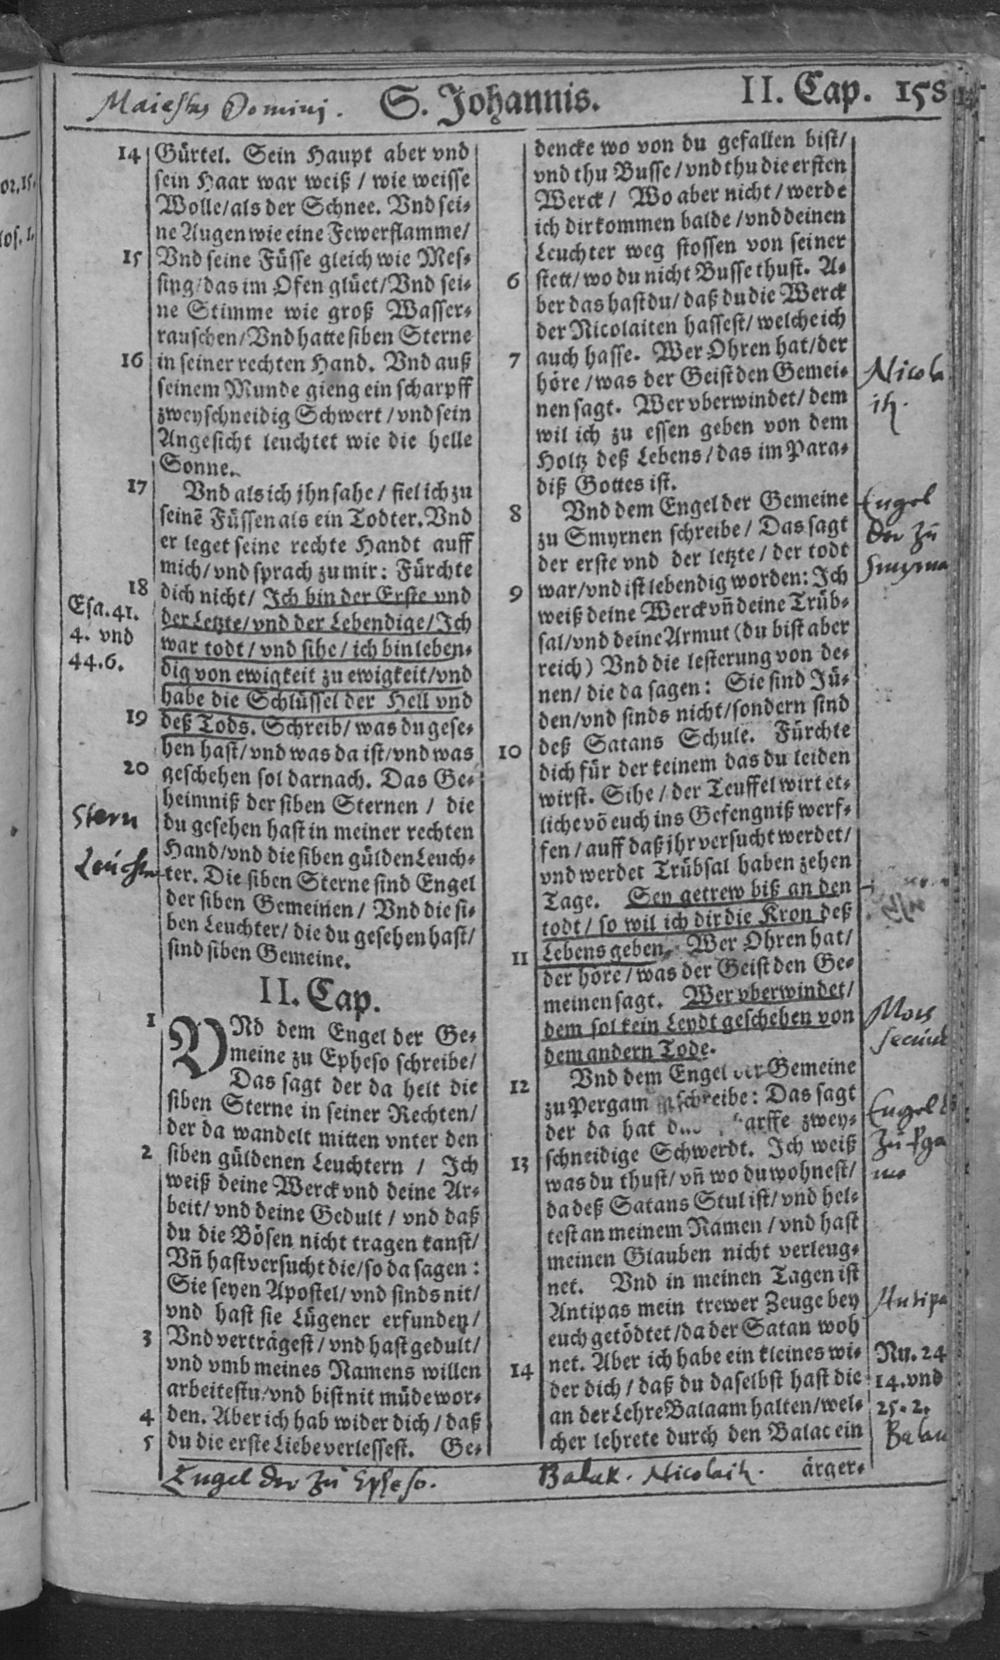 Maiestas Domini.
S. Johannis.
II. Cap. 158
14 Gürtel. Sein Haupt aber vnd
sein Haar war weiß / wie weisse
Wolle/als der Schnee. Vnd sei-
ne Augen wie eine Fewerflamme/
15 Vnd seine Füsse gleich wie Mes-
sing/das im Ofen glüet/Vnd sei-
ne Stimme wie groß Wasser-
rauschen/Vnd hatte siben Sterne
16 in seiner rechten Hand. Vnd auß
seinem Munde gieng ein scharpff
zweyschneidig Schwert/vnd sein
Angesicht leuchtet wie die helle
Sonne.
17 Vnd als ich jhn sahe/ fiel ich zu
seinē Füssen als ein Todter. Vnd
er leget seine rechte Handt auff
mich/vnd sprach zu mir: Fürchte
18 dich nicht/ Ich bin der Erste vnd
Esa. 41.
4. vnd
44.6.
der Letzte/vnd der Lebendige/Ich
war todt/ vnd sihe/ ich bin leben-
dig von ewigkeit zu ewigkeit/vnd
habe die Schlüssel der Hell vnd
19 deß Tods. Schreib/ was du gese-
hen hast/vnd was da ist/vnd was
20 geschehen sol darnach. Das Ge-
heimniß der siben Sternen / die
Stern
du gesehen hast in meiner rechten
Hand/vnd die siben gülden Leuch-
Leuchter
ter. Die siben Sterne sind Engel
der siben Gemeinen/ Vnd die si-
ben Leuchter/ die du gesehen hast/
sind siben Gemeine.
II. Cap.
1 VNd dem Engel der Ge-
meine zu Epheso schreibe/
Das sagt der da helt die
siben Sterne in seiner Rechten/
der da wandelt mitten vnter den
2 siben güldenen Leuchtern / Ich
weiß deine Werck vnd deine Ar-
beit/ vnd deine Gedult / vnd daß
du die Bösen nicht tragen kanst/
Vñ hast versucht die/so da sagen:
Sie seyen Apostel/ vnd sinds nit/
vnd hast sie Lügener erfunden/
3 Vnd verträgest/ vnd hast gedult/
vnd vmb meines Namens willen
arbeitestu/vnd bist nit müde wor-
4 den. Aber ich hab wider dich/ daß
5 du die erste Liebe verlessest. Ge-
Engel der zu Epheso.
dencke wo von du gefallen bist/
vnd thu Busse/vnd thu die ersten
Werck/ Wo aber nicht/werde
ich dir kommen balde/vnd deinen
Leuchter weg stossen von seiner
6 stett/wo du nicht Busse thust. A-
ber das hast du/ daß du die Werck
der Nicolaiten hassest/welche ich
7 auch hasse. Wer Ohren hat/der
höre/was der Geist den Gemei-
nen sagt. Wer vberwindet/ dem
wil ich zu essen geben von dem
Holtz deß Lebens/das im Para-
diß Gottes ist.
8 Vnd dem Engel der Gemeine
Engel
der zu
Smyrna
zu Smyrnen schreibe/ Das sagt
der erste vnd der letzte/ der todt
9 war/vnd ist lebendig worden: Ich
weiß deine Werck vñ deine Trüb-
sal/vnd deine Armut (du bist aber
reich) Vnd die lesterung von de-
nen/ die da sagen: Sie sind Jü-
den/vnd sinds nicht/sondern sind
10 deß Satans Schule. Fürchte
dich für der keinem das du leiden
wirst. Sihe/ der Teuffel wirt et-
liche vō euch ins Gefengniß werf-
fen/ auff daß jhr versucht werdet/
vnd werdet Trübsal haben zehen
Tage. Sey getrew biß an den
todt/ so wil ich dir die Kron deß
11 Lebens geben. Wer Ohren hat/
der höre/ was der Geist den Ge-
meinen sagt. Wer vberwindet/
Mors
dem sol kein Leydt geschehen von
dem andern Tode.
12 Vnd dem Engel der Gemeine
zu Pergam schreibe: Das sagt
Engel
der da hat zwey-
13 schneidige Schwerdt. Ich weiß
was du thust/ vñ wo du wohnest/
da deß Satans Stul ist/ vnd hel-
test an meinem Namen / vnd hast
meinen Glauben nicht verleug-
net. Vnd in meinen Tagen ist
Antipas mein trewer Zeuge bey
Antipa
euch getödtet/da der Satan woh
14 net. Aber ich habe ein kleines wi-
Nu. 24
14. vnd
25. 2.
der dich / daß du daselbst hast die
an der Lehre Balaam halten/wel-
cher lehrete durch den Balac ein
ärger-
Balak. Nicolait.